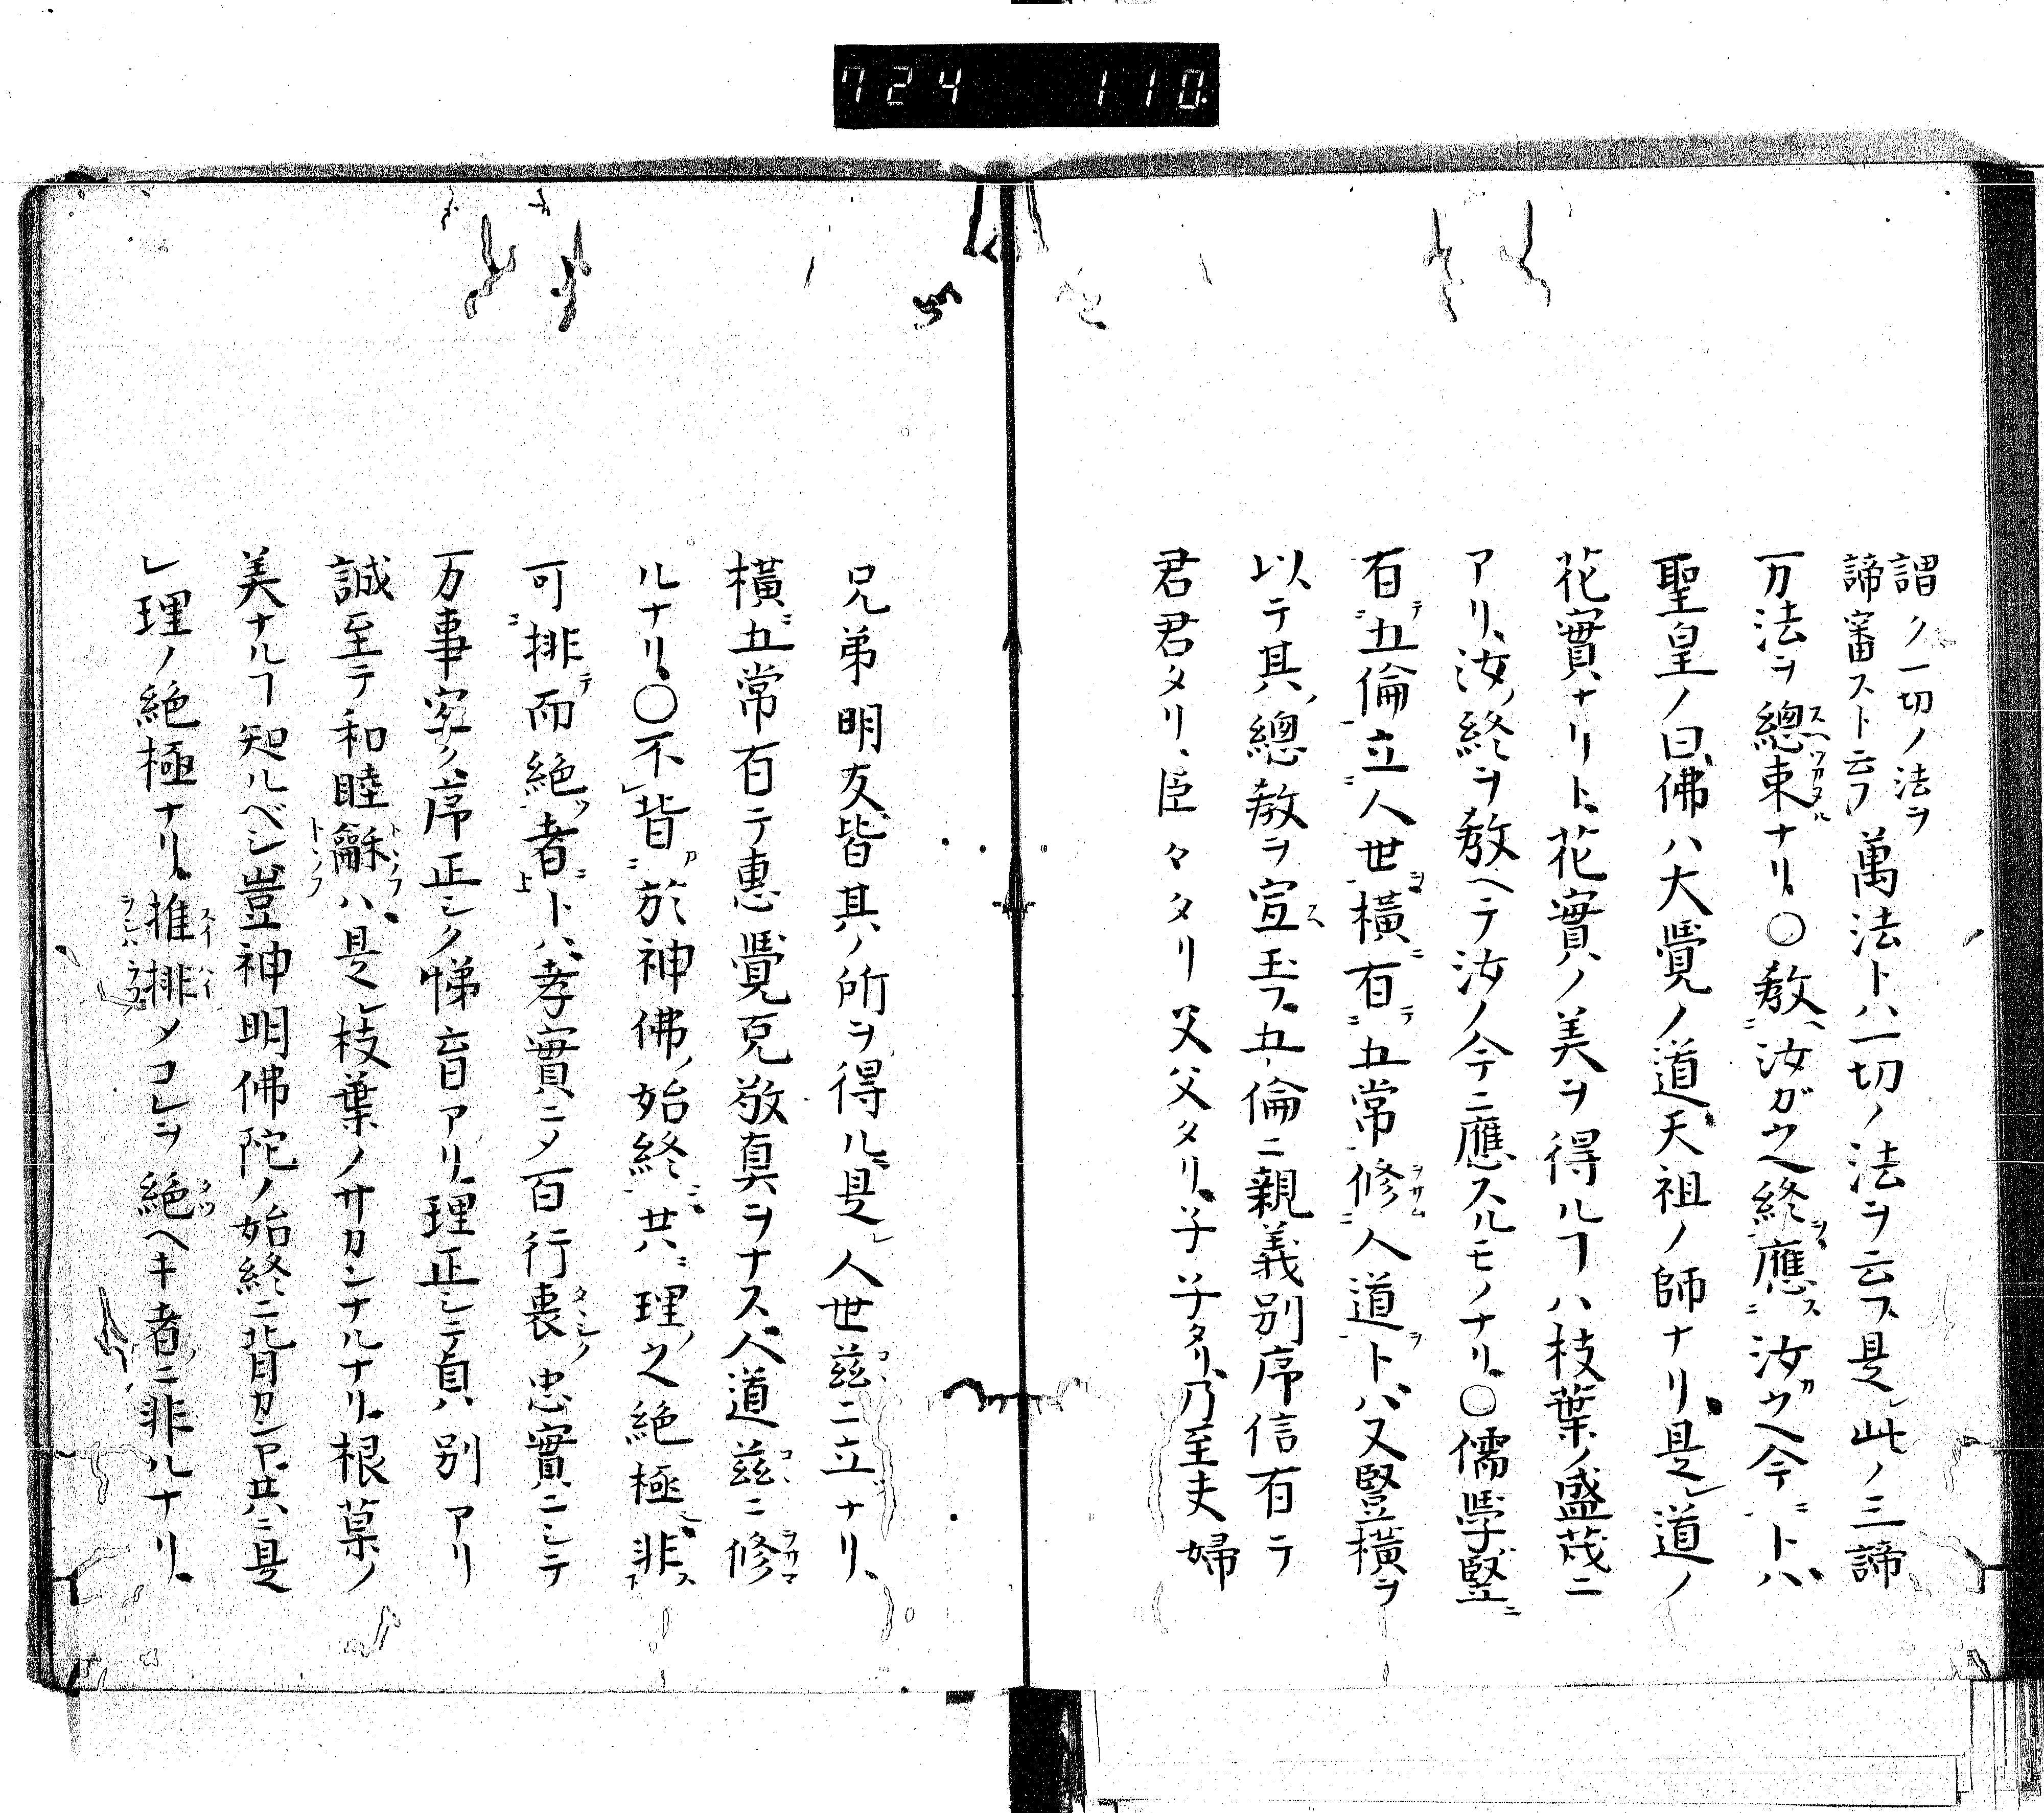 724 110
謂ク一切ノ法ヲ
諦審スト云フ
萬法トハ一切ノ法ヲ云ス是レ此ノ三諦
万法ヲ總束ナリ○教汝ガ之終應汝ウヘ今トハ
聖皇ノ曰佛ハ大覺ノ道天祖ノ師ナリ是レ道ノ
花實ナリト花實ノ美ヲ得ルヿハ枝葉ノ盛茂ニ
アリ汝ノ終ヲ教ヘテ汝ノ今ニ應スルモノナリ○儒學竪
百五倫立人世橫百五常修人道トハ又豎橫ヲ
以テ其ノ總教ヲ宣玉フ五倫ニ親義別序信有テ
君君タリ臣々タリ父父タリ子子タリ乃至夫婦
兄弟朋友皆其ノ所ヲ得ル是レ人世茲ニ立ナリ
橫五常百テ惠覺克敬真ヲナス人道茲ニ修
ルナリ○不皆於神佛始終共理之絶極非
可排而絶者トハ孝實ニメ百行裏忠實ニシテ
万事密序正シク悌盲アリ理正シテ貞別アリ
誠至テ和睦龢ハ是レ枝葉ノサカンナルナリ根菓ノ
美ナルヿ知ルベシ豈神明佛陀ノ始終ニ背カンヤ共ニ是
レ理ノ絶極ナリ推排メコレヲ絶ヘキ者ニ非ルナリ